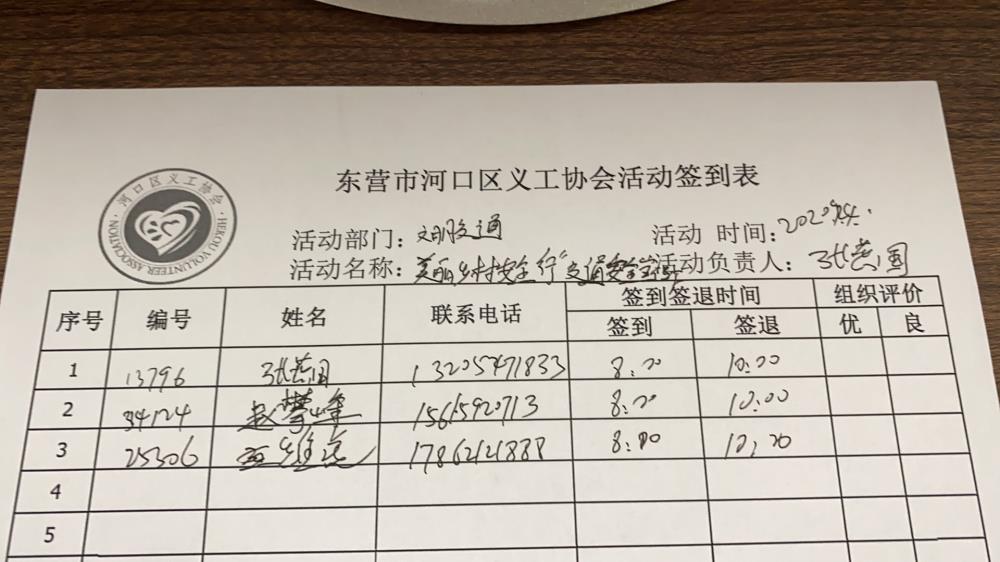 东营市河口区义工协会活动签到表
河口区义工协会
HEKOU VOLUNTEER ASSOCIATION
活动部门：文明交通 活动 时间：2020
活动名称：美丽乡村安全行"交通安全 活动负责人：张燕国
序号 编号 姓名 联系电话 签到签退时间 组织评价
签到 签退 优 良
1 13796 张燕国 13205471833 8:00 10:00
2 34124 赵攀峰 15615920713 8:00 10:00
3 25306 17862121888 8:00 10:00
4
5